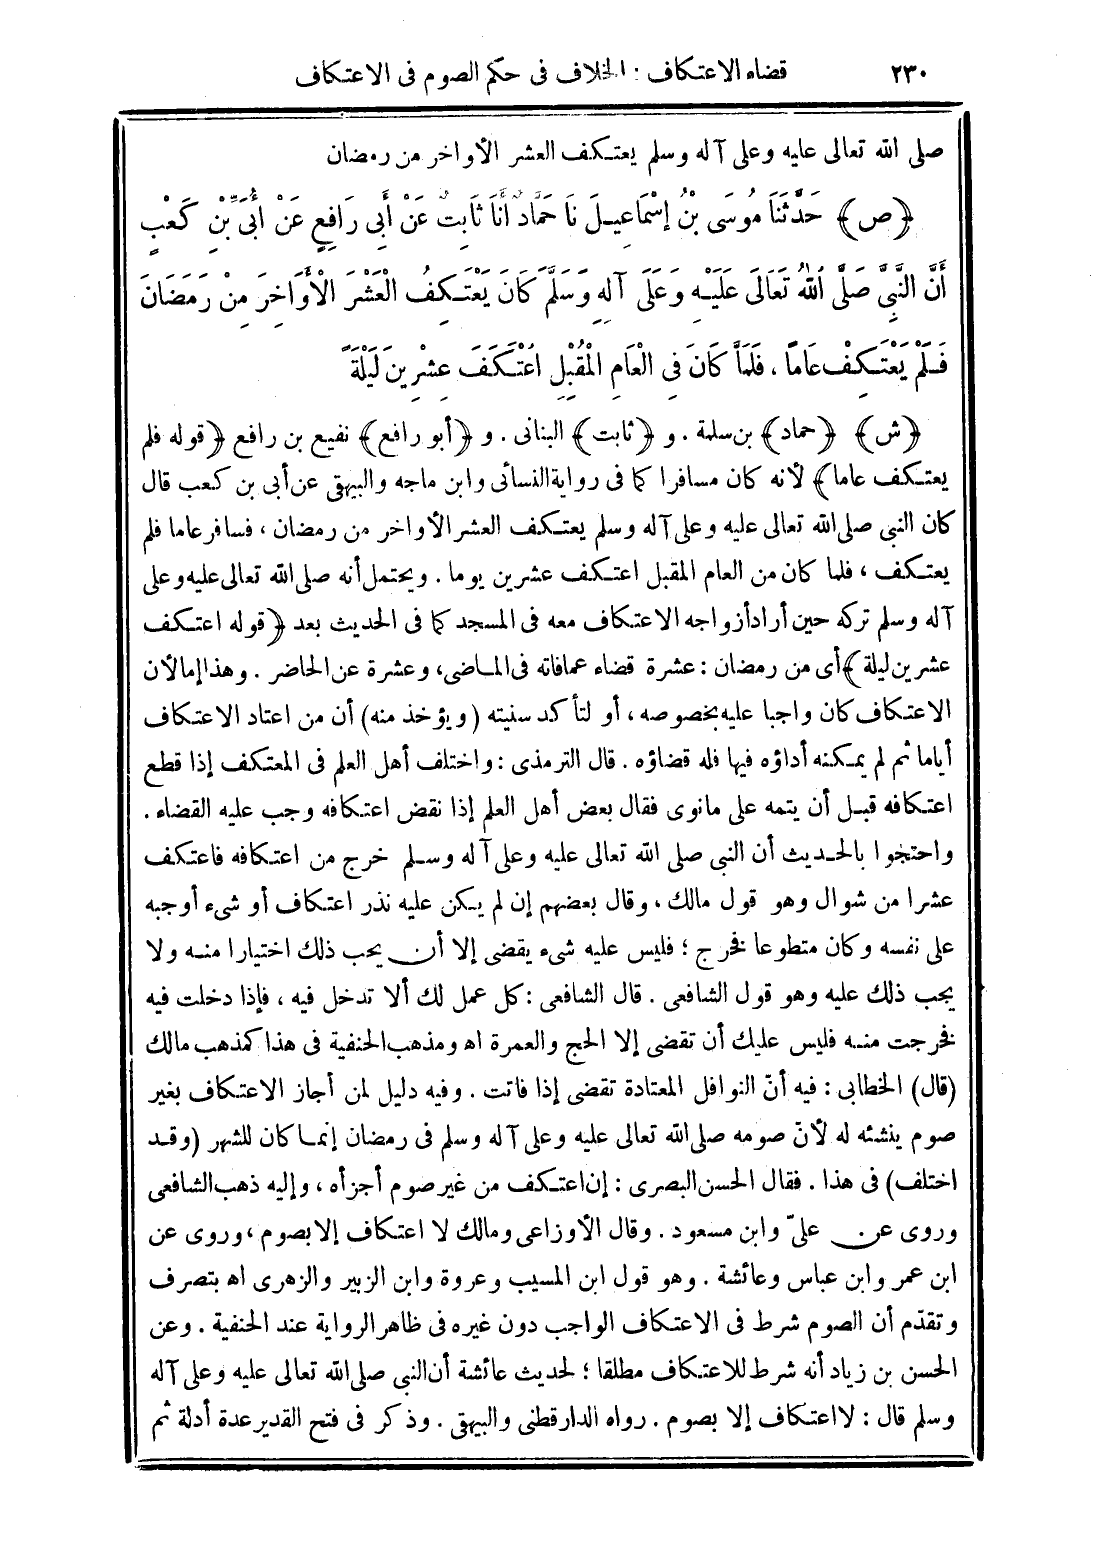 ٢٣٠ قضاء الاعتكاف : الخلاف فى حكم الصوم فى الاعتكاف
صلى الله تعالى عليه وعلى آله وسلم يعتكف العشر الأواخر من رمضان
﴿ص﴾ حَدَّثَنَا مُوسَى بْنُ إِسْمَاعِيلَ نَا حَمَّادٌ أَنَا ثَابِتٌ عَنْ أَبِى رَافِعٍ عَنْ أُبَىِّ بْنِ كَعْبٍ
أَنَّ النَّبِىَّ صَلَّى اللهُ تَعَالَى عَلَيْهِ وَعَلَى آلِهِ وَسَلَّمَ كَانَ يَعْتَكِفُ الْعَشْرَ الْأَوَاخِرَ مِنْ رَمَضَانَ
فَلَمْ يَعْتَكِفْ عَامًا ، فَلَمَّا كَانَ فِى الْعَامِ الْمُقْبِلِ اعْتَكَفَ عِشْرِينَ لَيْلَةً
﴿ش﴾ ﴿حماد﴾ بن سلمة . و ﴿ثابت﴾ البنانى . و ﴿أبو رافع﴾ نفيع بن رافع ﴿قوله فلم
يعتكف عاما﴾ لأنه كان مسافرا كما فى رواية النسائى وابن ماجه والبيهقى عن أبى بن كعب قال
كان النبي صلى الله تعالى عليه وعلى آله وسلم يعتكف العشر الأواخر من رمضان ، فسافر عاما فلم
يعتكف ، فلما كان من العام المقبل اعتكف عشرين يوما . ويحتمل أنه صلى الله تعالى عليه وعلى
آله وسلم تركه حين أراد أزواجه الاعتكاف معه فى المسجد كما فى الحديث بعد ﴿قوله اعتكف
عشرين ليلة﴾ أى من رمضان : عشرة قضاء عما فاته فى الماضى، وعشرة عن الحاضر . وهذا إما لأن
الاعتكاف كان واجبا عليه بخصوصه ، أو لتأكد سنيته (ويؤخذ منه) أن من اعتاد الاعتكاف
أياما ثم لم يمكنه أداؤه فيها فله قضاؤه . قال الترمذى : واختلف أهل العلم فى المعتكف إذا قطع
اعتكافه قبل أن يتمه على مانوى فقال بعض أهل العلم إذا نقض اعتكافه وجب عليه القضاء .
واحتجوا بالحديث أن النبي صلى الله تعالى عليه وعلى آله وسلم خرج من اعتكافه فاعتكف
عشرا من شوال وهو قول مالك ، وقال بعضهم إن لم يكن عليه نذر اعتكاف أو شىء أوجبه
على نفسه وكان متطوعا فخرج ؛ فليس عليه شىء يقضى إلا أن يحب ذلك اختيارا منه ولا
يجب ذلك عليه وهو قول الشافعى . قال الشافعى : كل عمل لك ألا تدخل فيه ، فإذا دخلت فيه
فخرجت منه فليس عليك أن تقضى إلا الحج والعمرة اه ومذهب الحنفية فى هذا كمذهب مالك
(قال) الخطابى : فيه أنّ النوافل المعتادة تقضى إذا فاتت . وفيه دليل لمن أجاز الاعتكاف بغير
صوم ينشئه له لأنّ صومه صلى الله تعالى عليه وعلى آله وسلم فى رمضان إنما كان للشهر (وقد
اختلف) فى هذا . فقال الحسن البصرى : إن اعتكف من غير صوم أجزأه ، وإليه ذهب الشافعى
وروى عن علىّ وابن مسعود . وقال الأوزاعى ومالك لا اعتكاف إلا بصوم ، وروى عن
ابن عمر وابن عباس وعائشة . وهو قول ابن المسيب وعروة وابن الزبير والزهرى اه بتصرف
وتقدّم أن الصوم شرط فى الاعتكاف الواجب دون غيره فى ظاهر الرواية عند الحنفية . وعن
الحسن بن زياد أنه شرط للاعتكاف مطلقا ؛ لحديث عائشة أن النبي صلى الله تعالى عليه وعلى آله
وسلم قال : لا اعتكاف إلا بصوم . رواه الدارقطنى والبيهقى . وذكر فى فتح القدير عدة أدلة ثم